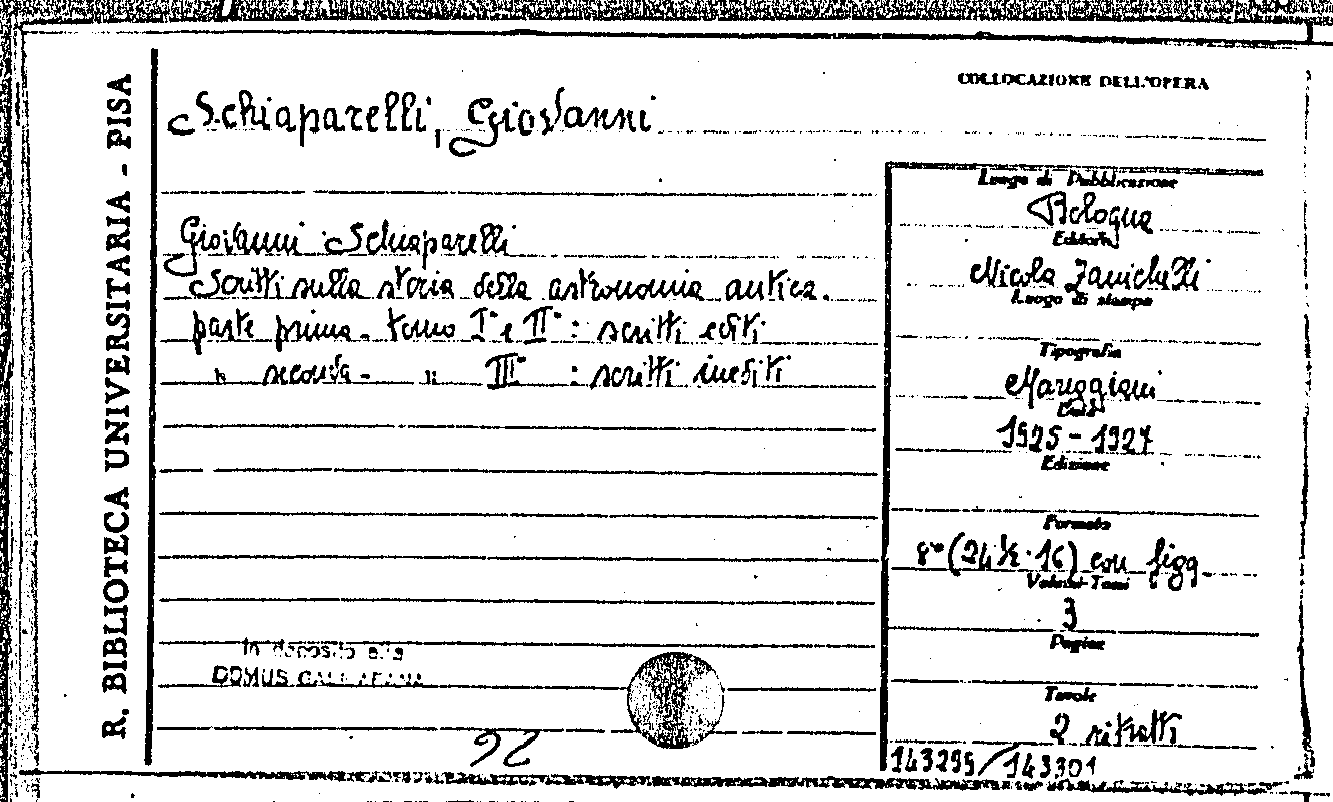 R. BIBLIOTECA UNIVERSITARIA - PISA
COLLOCAZIONE DELL'OPERA
Schiaparelli, Giovanni
Giovanni Schiaparelli
Scritti sulla storia della astronomia antica.
parte prima - tomo I° e II° : scritti editi
" seconda - " III° : scritti inediti
Luogo di Pubblicazione
Bologna
Editore
Nicola Zanichelli
Luogo di stampa
Tipografia
Mareggiani
Data
1925 - 1927
Edizione
Formato
8° (24 ½ · 16) con figg.
Volumi-Tomi
3
Pagine
Tavole
2 ritratti
In deposito alla
DOMUS GALILAEANA
92
143299/143301